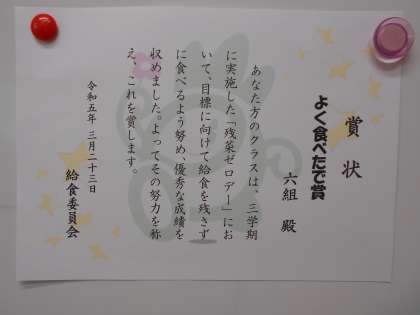 賞状
よく食べたで賞
六組 殿
あなた方のクラスは、三学期
に実施した「残菜ゼロデー」にお
いて、目標に向けて給食を残さず
に食べるよう努め、優秀な成績を
収めました。よってその努力を称
え、これを賞します。
令和五年 三月二十三日
給食委員会